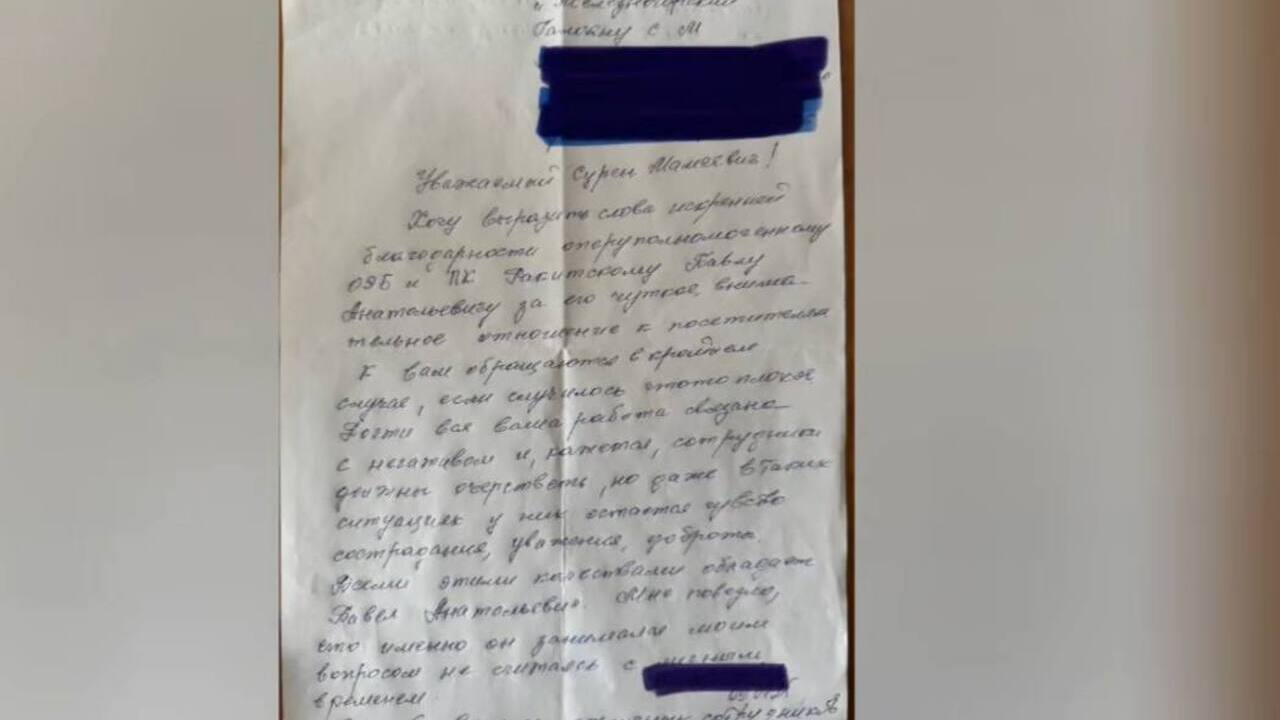 "Железногорский"
Галояну С М
Уважаемый Сурен Мамеевич!
Хочу выразить слова искренней
благодарности оперуполномоченному
ОЭБ и ПК Ракитскому Павлу
Анатольевичу за его чуткое, внима-
тельное отношение к посетителям
К вам обращаются в крайнем
случае, если случилось что-то плохое
Почти вся ваша работа связана
с негативом и, кажется, сотрудники
должны очерстветь, но даже в таких
ситуациях у них остается чувство
сострадания, уважения, доброты.
Всеми этими качествами обладает
Павел Анатольевич. Мне повезло,
что именно он занимался моим
вопросом не считаясь с личным
временем.
сотрудников